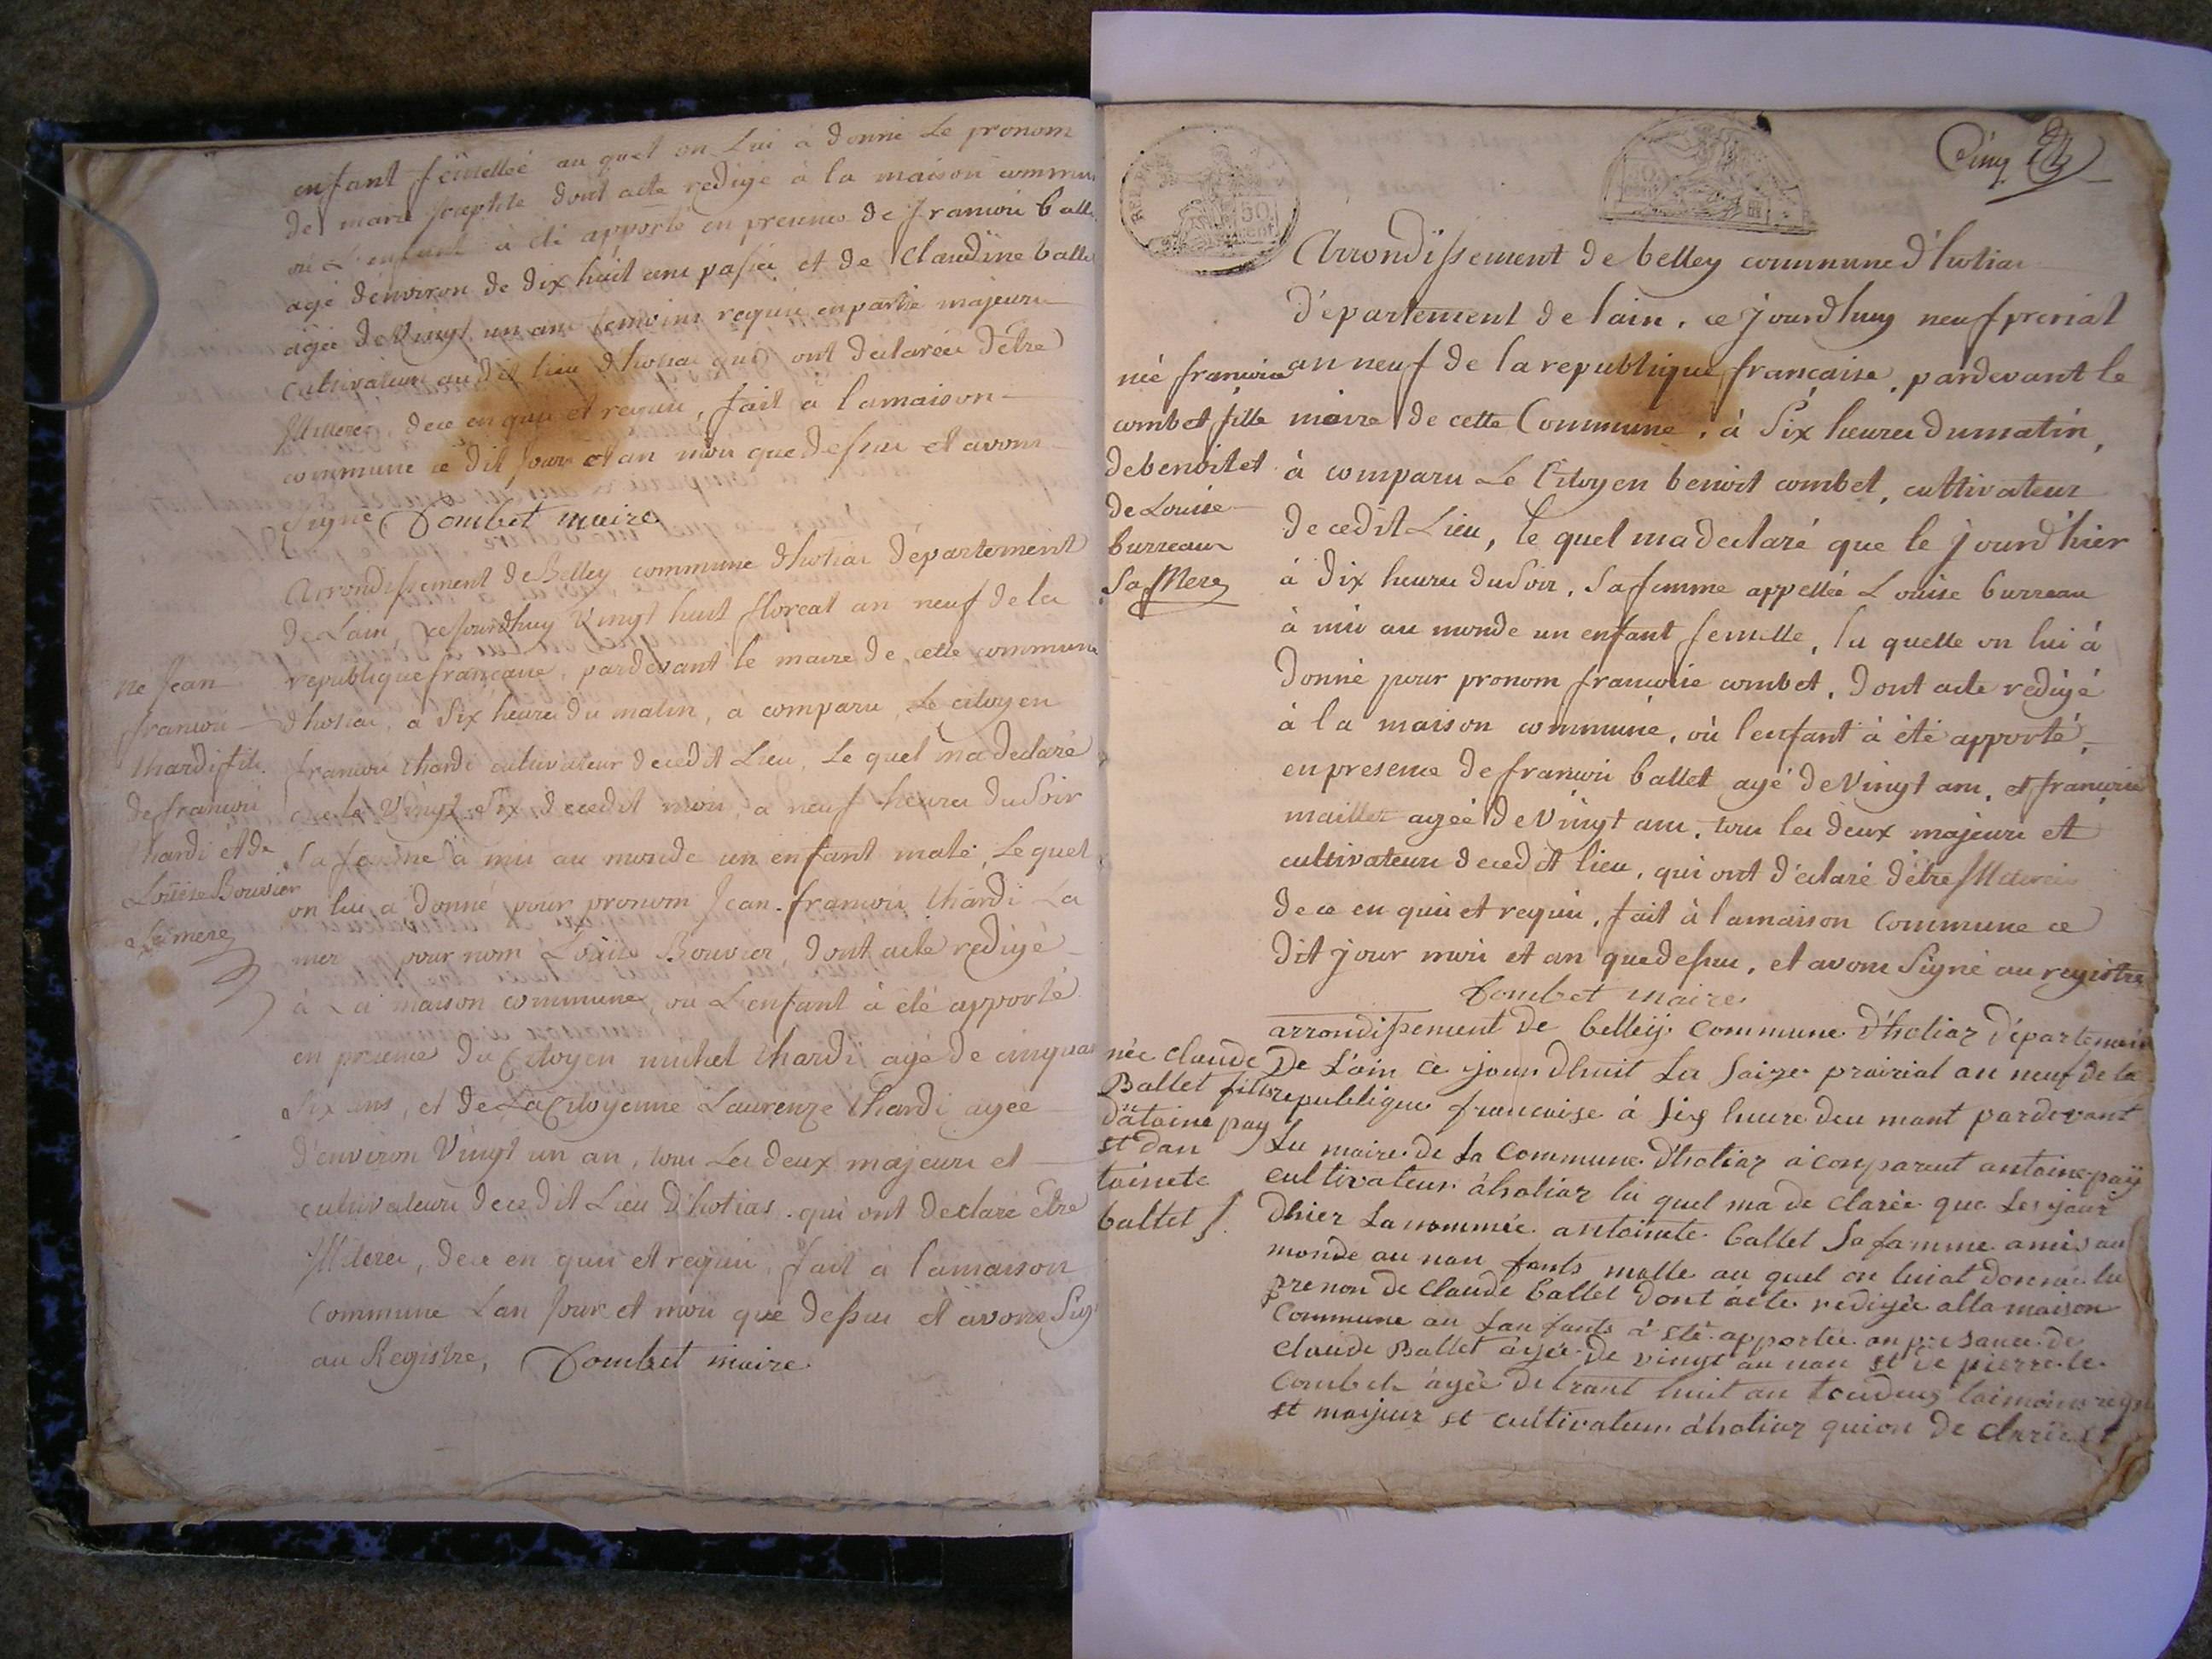 enfant femellée au quel on Lui à donné Le pronom
de marie Josephte dont acte redigé à la maison commune
où L'enfant à été apporté en presence de francoi balle
agé d'environ de dix huit ans passéé et de Claudine balle
agée de Vingt un ans temoins requi en partie majeurs
cultivateurs au dit lieu d'hotias qui ont declarée d'être
Illiteréé, de ce en quis et requis, fait a lamaison
commune ce dit jour et an mois que dessus et avons
Signé Combet maire
Arrondissement de Belley commune d'hotias département
De Lain, cejourdhuy Vingt huit floreal an neuf de la
republique francaise, pardevant le maire de cette commune
d'hotias, a Six heures du matin, a comparu Le citoyen
francois thardi cultivateur decedit Lieu, Le quel ma declaré
que le Vingt Six decedit mois, à neuf heures du Soir
Sa femme à mis au monde un enfant male, Le quel
on lui a donné pour pronom Jean-francois thardi La
mere pour nom Louise Bouvier, dont acte redigé
à La maison commune, ou L'enfant à été apporté
en presence du Citoyen michel thardi agé de cinquante
Six ans, et de La Citoyenne Laurenze thardi agée
d'environ Vingt un an, tous Les deux majeurs et
cultivateurs decedit Lieu D'hotias, qui ont declaré être
Illiteréé, de ce en quis et requis, fait à lamaison
Commune L'an Jour et mois que dessus et avons Sig
au Registre, Combet maire
né Jean
francois
thardi fils
de francois
thardi et de
Louise Bouvier
Sa mere
Cinq
50
Arrondissement de belley commune d'hotias
Département de lain, ce jourdhuy neuf prerial
an neuf de la republique francaise, pardevant le
maire de cette Commune, à Six heures dumatin,
à comparu Le Citoyen benoit combet, cultivateur
decedit Lieu, le quel ma declaré que le jourd'hier
à dix heures du Soir, Sa femme appellée Louise burreau
à mis au monde un enfant femelle, la quelle on lui à
donné pour pronom francoise combet, dont acte redigé
à la maison commune, où lenfant à été apporté,
en presence de francois ballet agé de Vingt ans, et francoise
maillet agéé de Vingt ans, tous les deux majeurs et
cultivateurs decedit lieu, qui ont déclaré d'être Illiteréé
de ce en quis et requis, fait à lamaison Commune ce
dit jour mois et an que dessus, et avons Signé au registre
Combet maire
née francoise
combet fille
de benoit et
de Louise
burreaux
Sa Mere
arrondissement de belleÿ commune d'hotiaz département
De L'ain ce jour dhuit Le saize prairial an neuf de la
republique francaise à six heure deu mant pardevant
Lu maire de La commune d'hotiaz à conpareut antoine paÿ
cultivateur à hotiaz lu quel ma de clarée que Les jour
Dhier La nommée antoinete ballet Sa famme amis au
monde au nan fants malle au quel on luiat donnée lu
prenon de claude ballet dont acte redigée alla maison
Commune au Lan fants à été apportée an presance de
Claude Ballet agée de vingt au nan et de pierre le
Combet agée de trant huit an toudeux taimoins requi
et maijeur et cultivateur à hotiaz quion de clarée et
née claude
Ballet fills
d'antoine pay
et dan
toinete
ballet